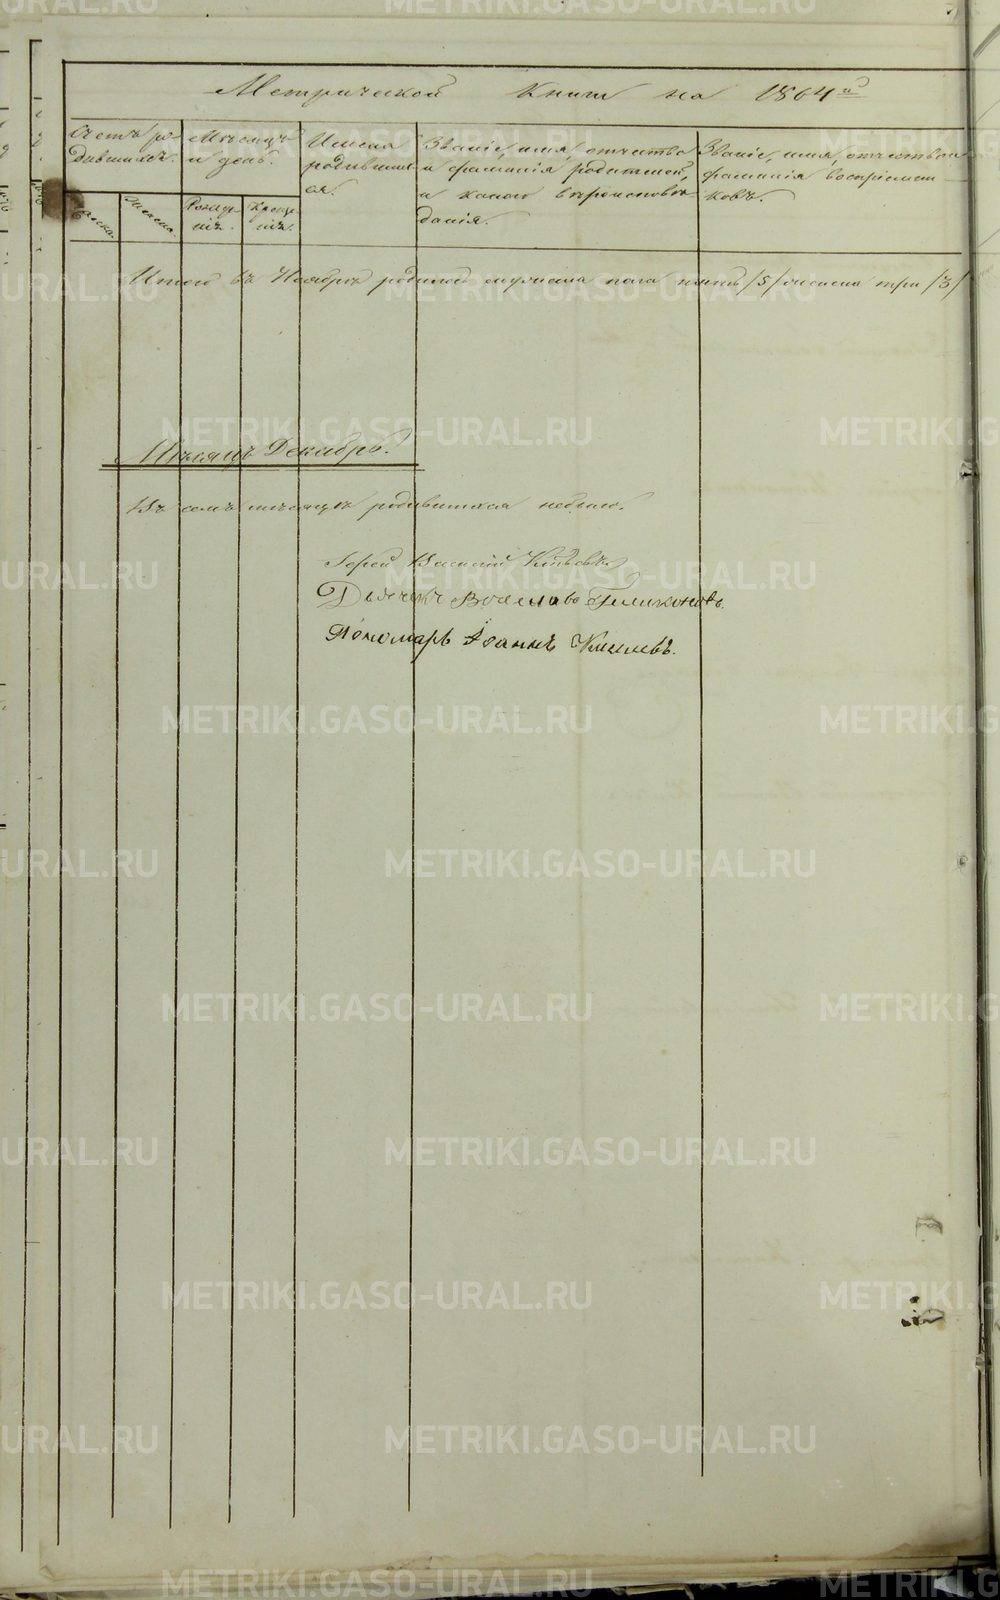 Метрической Книги на 1864й
Счетъ ро-
дившихся.
Мѣсяцъ
и день.
Имена
родивших-
ся.
Званіе, имя, отчество
и фамилія родителей,
и какого вѣроисповѣ-
данія.
Званіе, имя, отчество и
фамилія воспріемни-
ковъ.
Рожде-
нія.
Креще-
нія.
Итого въ Ноябрѣ родилось мужеска пола пять /5/ женска три /3/
Мѣсяцъ Декабрь.
Въ семъ мѣсяцѣ родившихся небыло.
Іерей Василій
Дьячекъ
Пономарь Іоаннъ
METRIKI.GASO-URAL.RU